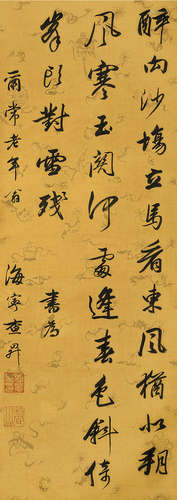 醉向沙場立馬看東風猶似朔
風寒玉關何處逢春色斜倚
峯頭對雪殘 書為
爾常老年翁 海寧查昇